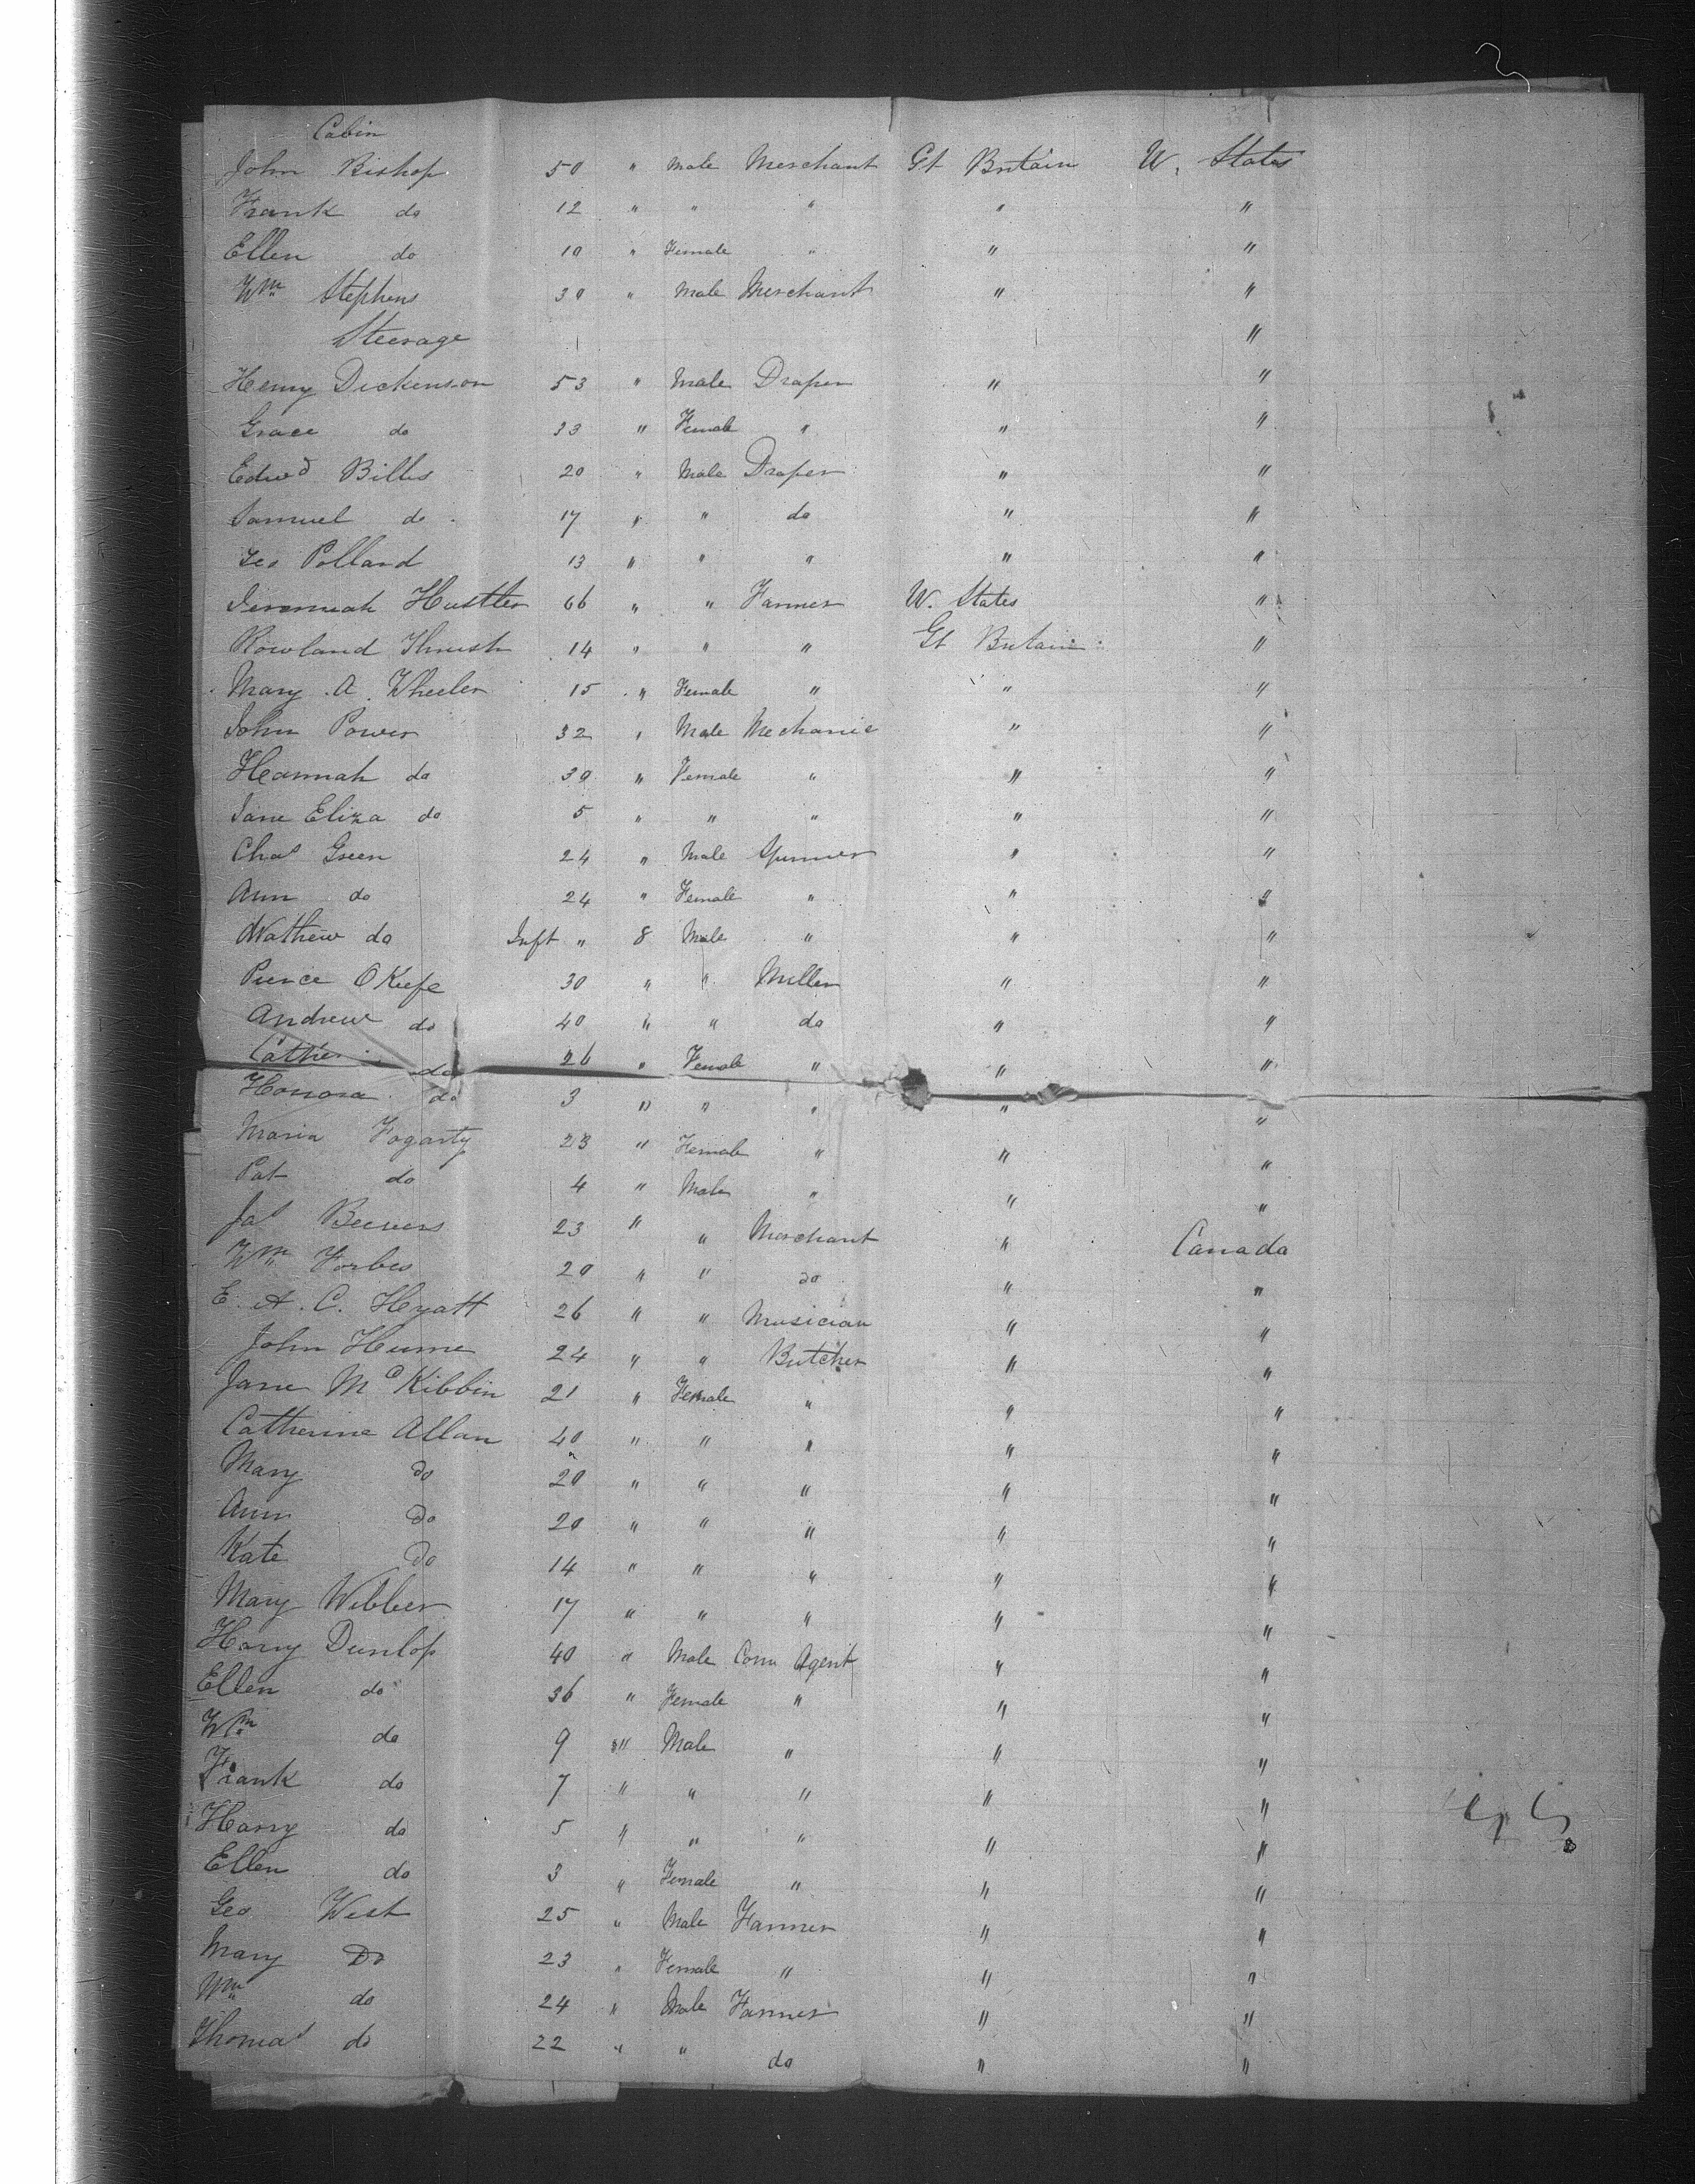 Cabin
John Bishop 50 " Male Merchant Gt Britain U. States
Frank do 12 " " " " "
Ellen do 10 " Female " " "
Wm Stephens 30 " Male Merchant " "
Steerage "
Henry Dickenson 53 " Male Draper " "
Grace do 33 " Female " " "
Edwd Bills 20 " Male Draper " "
Samuel do 17 " " do " "
Geo Pollard 13 " " " " "
Jeremiah Hustler 66 " " Farmer U. States "
Rowland Thrush 14 " " " Gt Britain "
Mary A. Wheeler 15 " Female " " "
John Power 32 " Male Mechanic " "
Hannah do 30 " Female " " "
Jane Eliza do 5 " " " " "
Chas Green 24 " Male Spinner " "
Ann do 24 " Female " " "
Mathew do Inft " 8 Male " " "
Pierce OKeefe 30 " " Miller " "
Andrew do 40 " " do " "
Cathe do 26 " Female " " "
Honora do 3 " " " " "
Maria Fogarty 23 " Female " " "
Pat do 4 " Male " " "
Jas Beevers 23 " " Merchant " Canada
Wm Forbes 20 " " do " "
E. A. C. Hyatt 26 " " Musician " "
John Hume 24 " " Butcher " "
Jane McKibbin 21 " Female " " "
Catherine Allan 40 " " " " "
Mary do 20 " " " " "
Ann do 20 " " " " "
Kate do 14 " " " " "
Mary Webber 17 " " " " "
Harry Dunlop 40 " Male Com Agent " "
Ellen do 36 " Female " " "
Wm do 9 " Male " " "
Frank do 7 " " " " "
Harry do 5 " " " " "
Ellen do 3 " Female " " "
Geo West 25 " Male Farmer " "
Mary Do 23 " Female " " "
Wm do 24 " Male Farmer " "
Thomas do 22 " " do " "